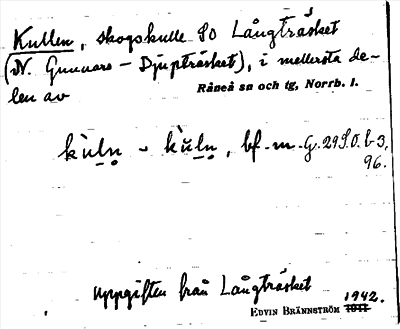 Kullen, skogskulle SO Långträsket
(N. Gunnars - Djupträsket), i mellersta de-
len av
Råneå sn och tg, Norrb. l.
kùln - kùln, bf. m. G. 29 S.O. b-3,
96.
uppgiften från Långträsket
EDVIN BRÄNNSTRÖM 1942.